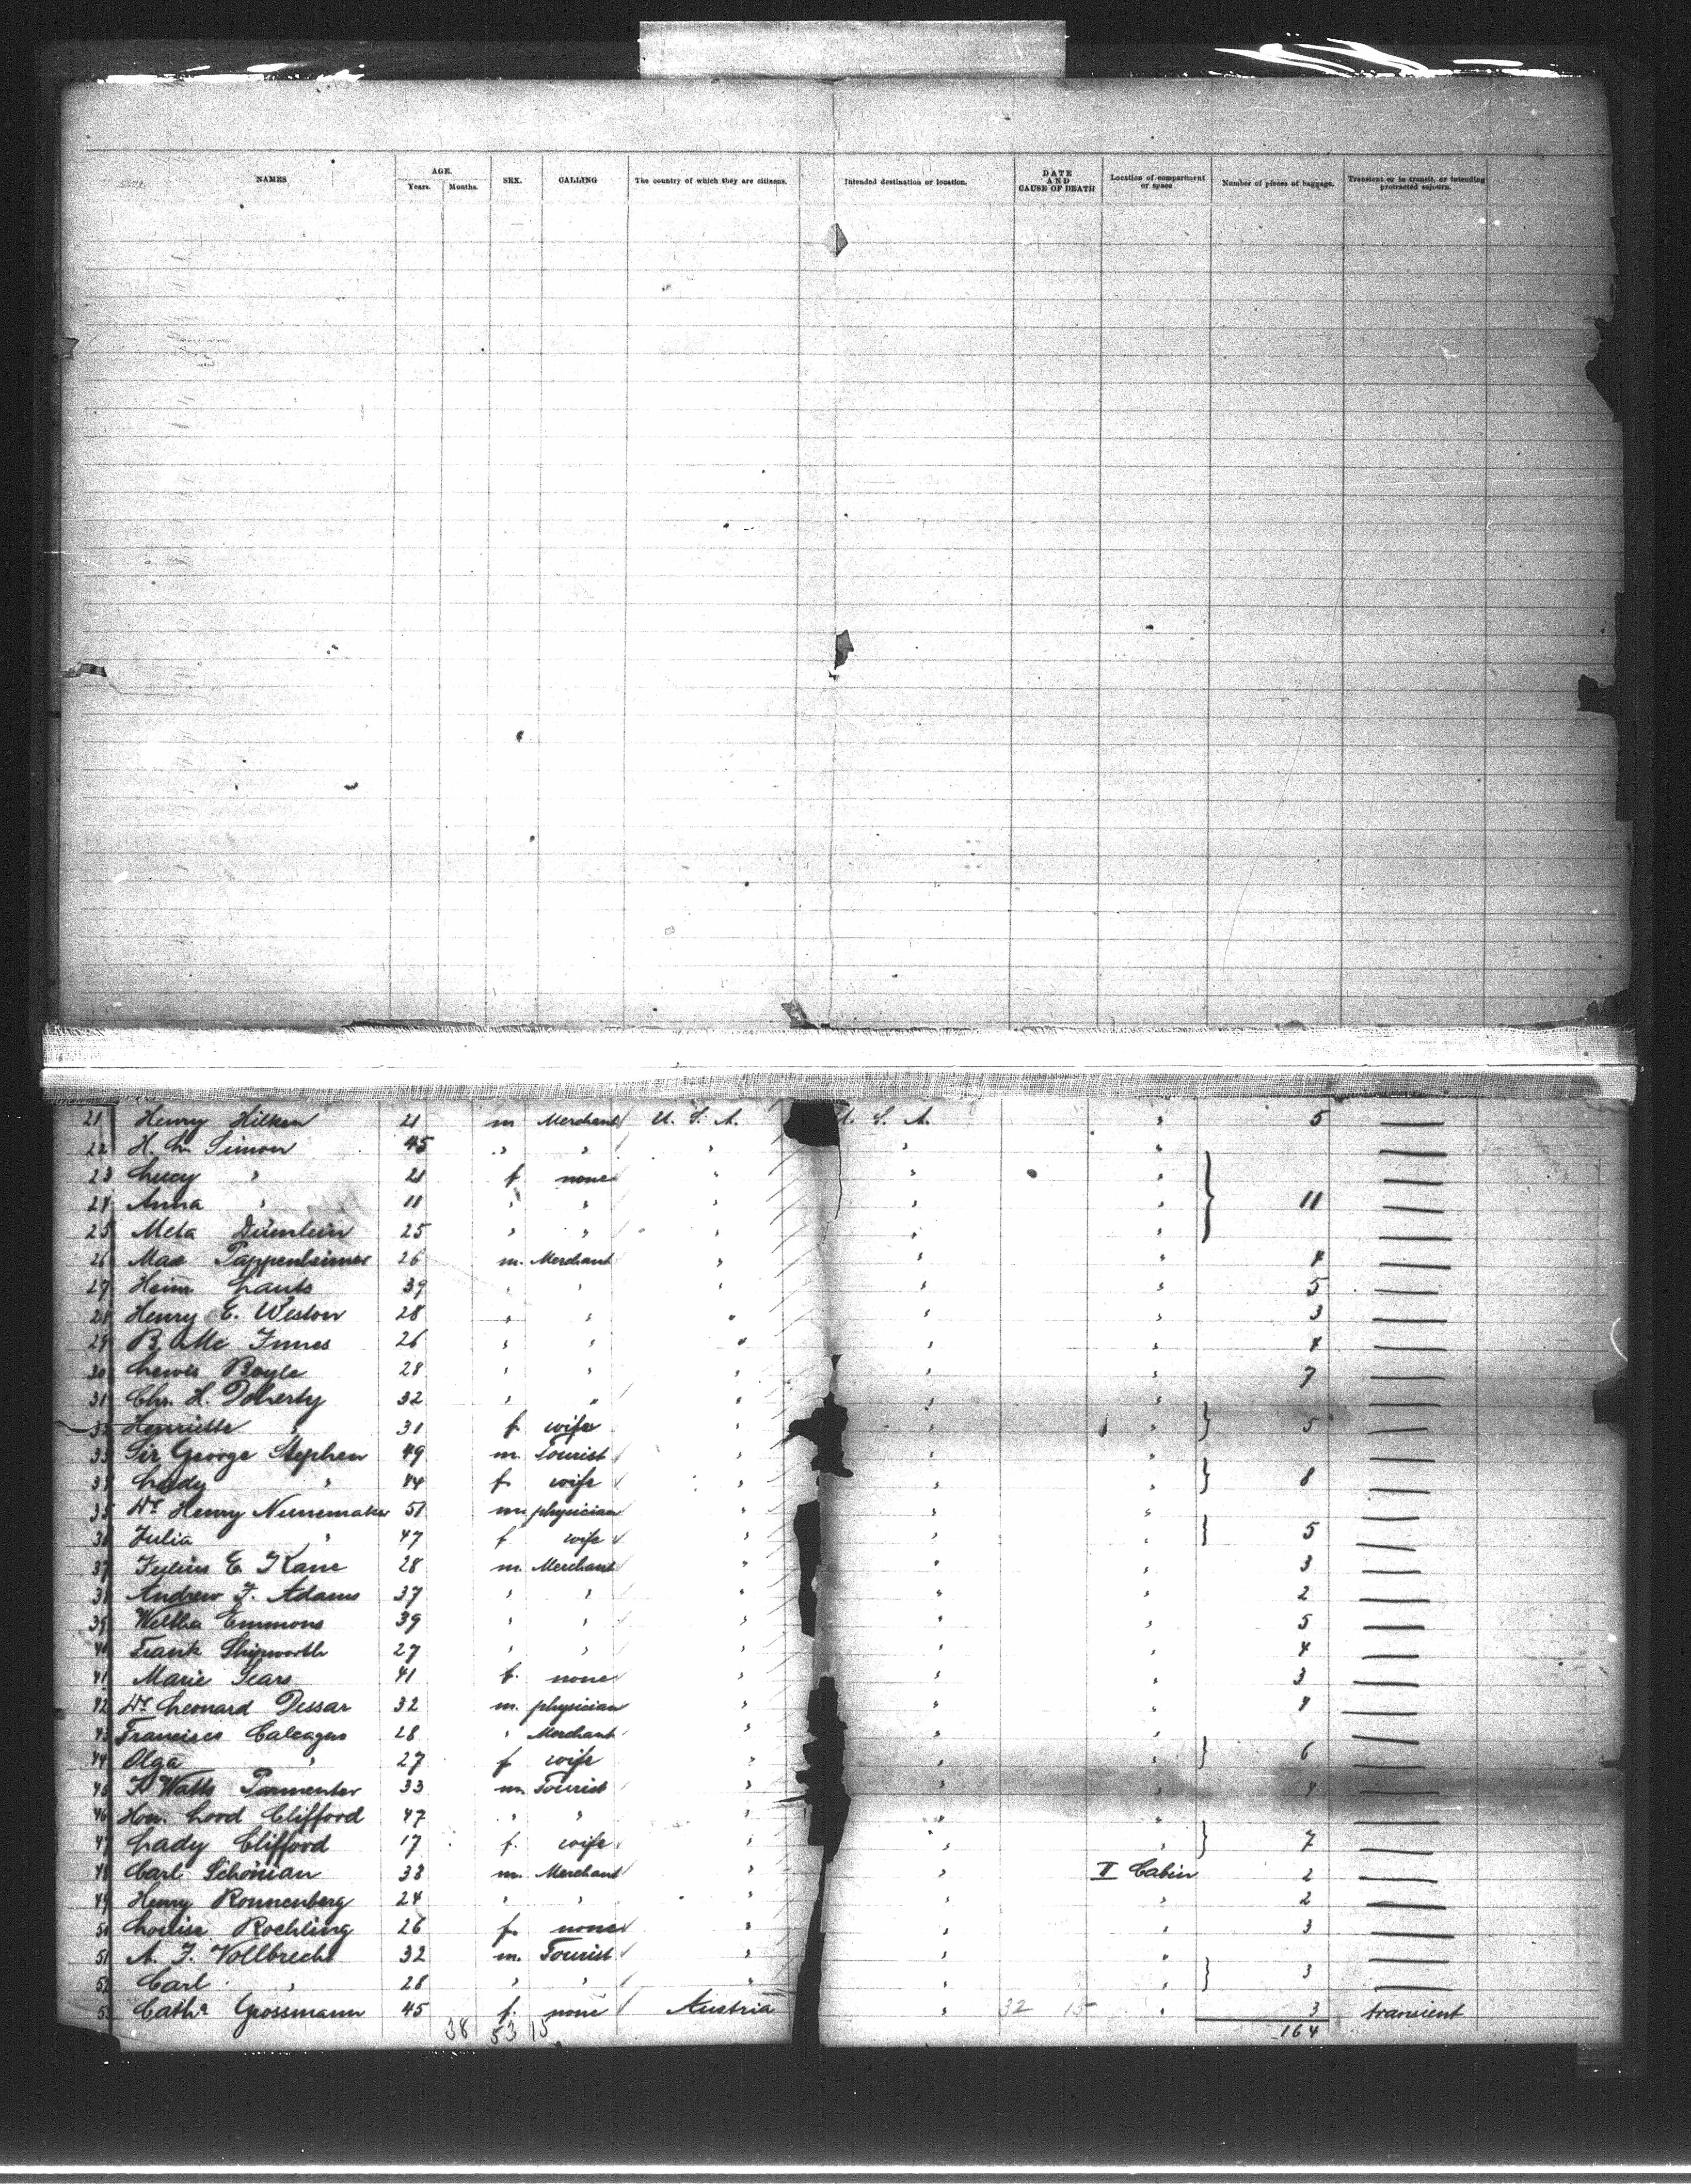 NAMES AGE. SEX. CALLING The country of which they are citizens. Intended destination or location. DATE AND CAUSE OF DEATH Location of compartment or space Number of pieces of baggage. Transient or in transit, or intending protracted sojourn.
Years. Months.
21 Henry Hilken 21 m Merchant U. S. A. U. S. A. " 5 —
22 H. L. Simon 45 " " " " " —
23 Lucy " 21 f none " " " —
24 Anna " 11 " " " " " 11 —
25 Meta Dümlein 25 " " " " " —
26 Max Pappenheimer 26 m. Merchant " " " 4 —
27 Heinr. Lauts 39 " " " " " 5 —
28 Henry E. Weston 28 " " " " " 3 —
29 B. Mc Innes 26 " " " " " 4 —
30 Lewis Boyle 28 " " " " " 7 —
31 Chr. H. Doherty 32 " " " " " —
32 Henriette " 31 f wife " " " 5 —
33 Sir George Stephen 49 m. Tourist " " " —
34 Lady " 44 f wife " " " 8 —
35 Dr. Henry Nunemaker 51 m. physician " " " —
36 Julia " 47 f wife " " " 5 —
37 Julius E. Kane 28 m. Merchant " " " 3 —
38 Andrew J. Adams 37 " " " " " 2 —
39 Emmons 39 " " " " " 5 —
40 Frank Shipworth 27 " " " " " 4 —
41 Marie Sears 41 f. none " " " 3 —
42 Dr. Leonard Dessar 32 m. physician " " " 4 —
43 Francisco Calcagno 28 " Merchant " " " —
44 Olga " 27 f wife " " " 6 —
45 Watts Parmenter 33 m. Tourist " " " 4 —
46 Hon. Lord Clifford 47 " " " " " —
47 Lady Clifford 17 f. wife " " " 7 —
48 Carl Schönian 33 m. Merchant " " II Cabin 2 —
49 Henry Ronnenberg 24 " " " " " 2 —
50 Louise Roehling 26 f. none " " " 3 —
51 A. J. Vollbrecht 32 m. Tourist " " " —
52 Carl " 28 " " " " " 3 —
53 Catha Grossmann 45 f. none Austria " 32 15 " 3 transient
38 53 15 164